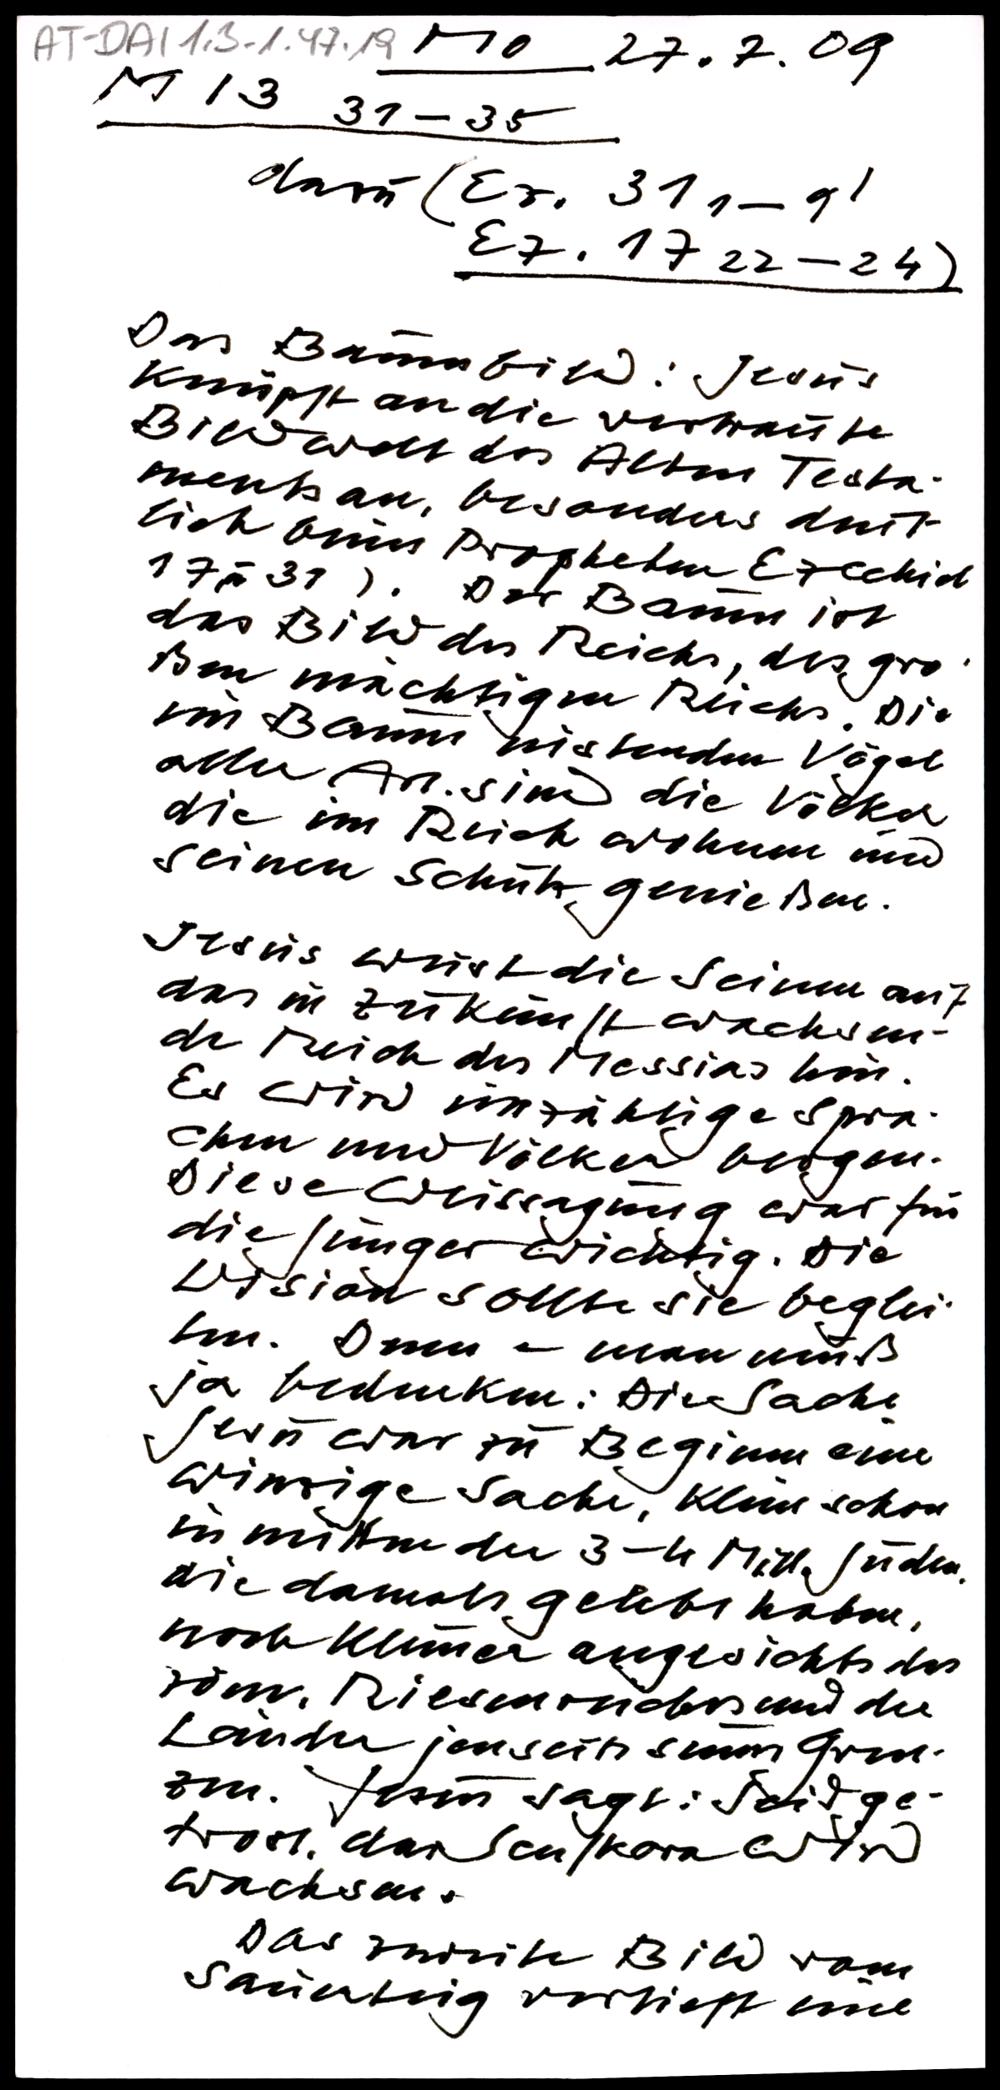 AT-DAI 1.3-1.47.19 Mo 27.7.09
M 13 31–35
dazu (Ez. 31 1–9
Ez. 17 22–24)
Das Baumbild: Jesus
knüpft an die vertraute
Bildwelt des Alten Testa-
ments an, besonders deut-
lich beim Propheten Ezechiel
17 u 31). Der Baum ist
das Bild des Reichs, des gro-
ßen mächtigen Reichs. Die
im Baum nistenden Vögel
aller Art. sind die Völker
die im Reich wohnen und
seinen Schutz genießen.
Jesus weist die Seinen auf
das in Zukunft wachsen-
de Reich des Messias hin.
Es wird unzählige Spra-
chen und Völker bergen.
Diese Weissagung war für
die Jünger wichtig. Die
Vision sollte sie beglei-
ten. Denn – man muß
ja bedenken: Die Sache
Jesu war zu Beginn eine
winzige Sache, klein schon
inmitten der 3–4 Mill. Juden,
die damals gelebt haben,
noch kleiner angesichts des
röm. Riesenreiches und der
Länder jenseits seiner Gren-
zen. Jesus sagt: Seid ge-
trost, das Senfkorn wird
wachsen.
Das zweite Bild vom
Sauerteig vertieft und